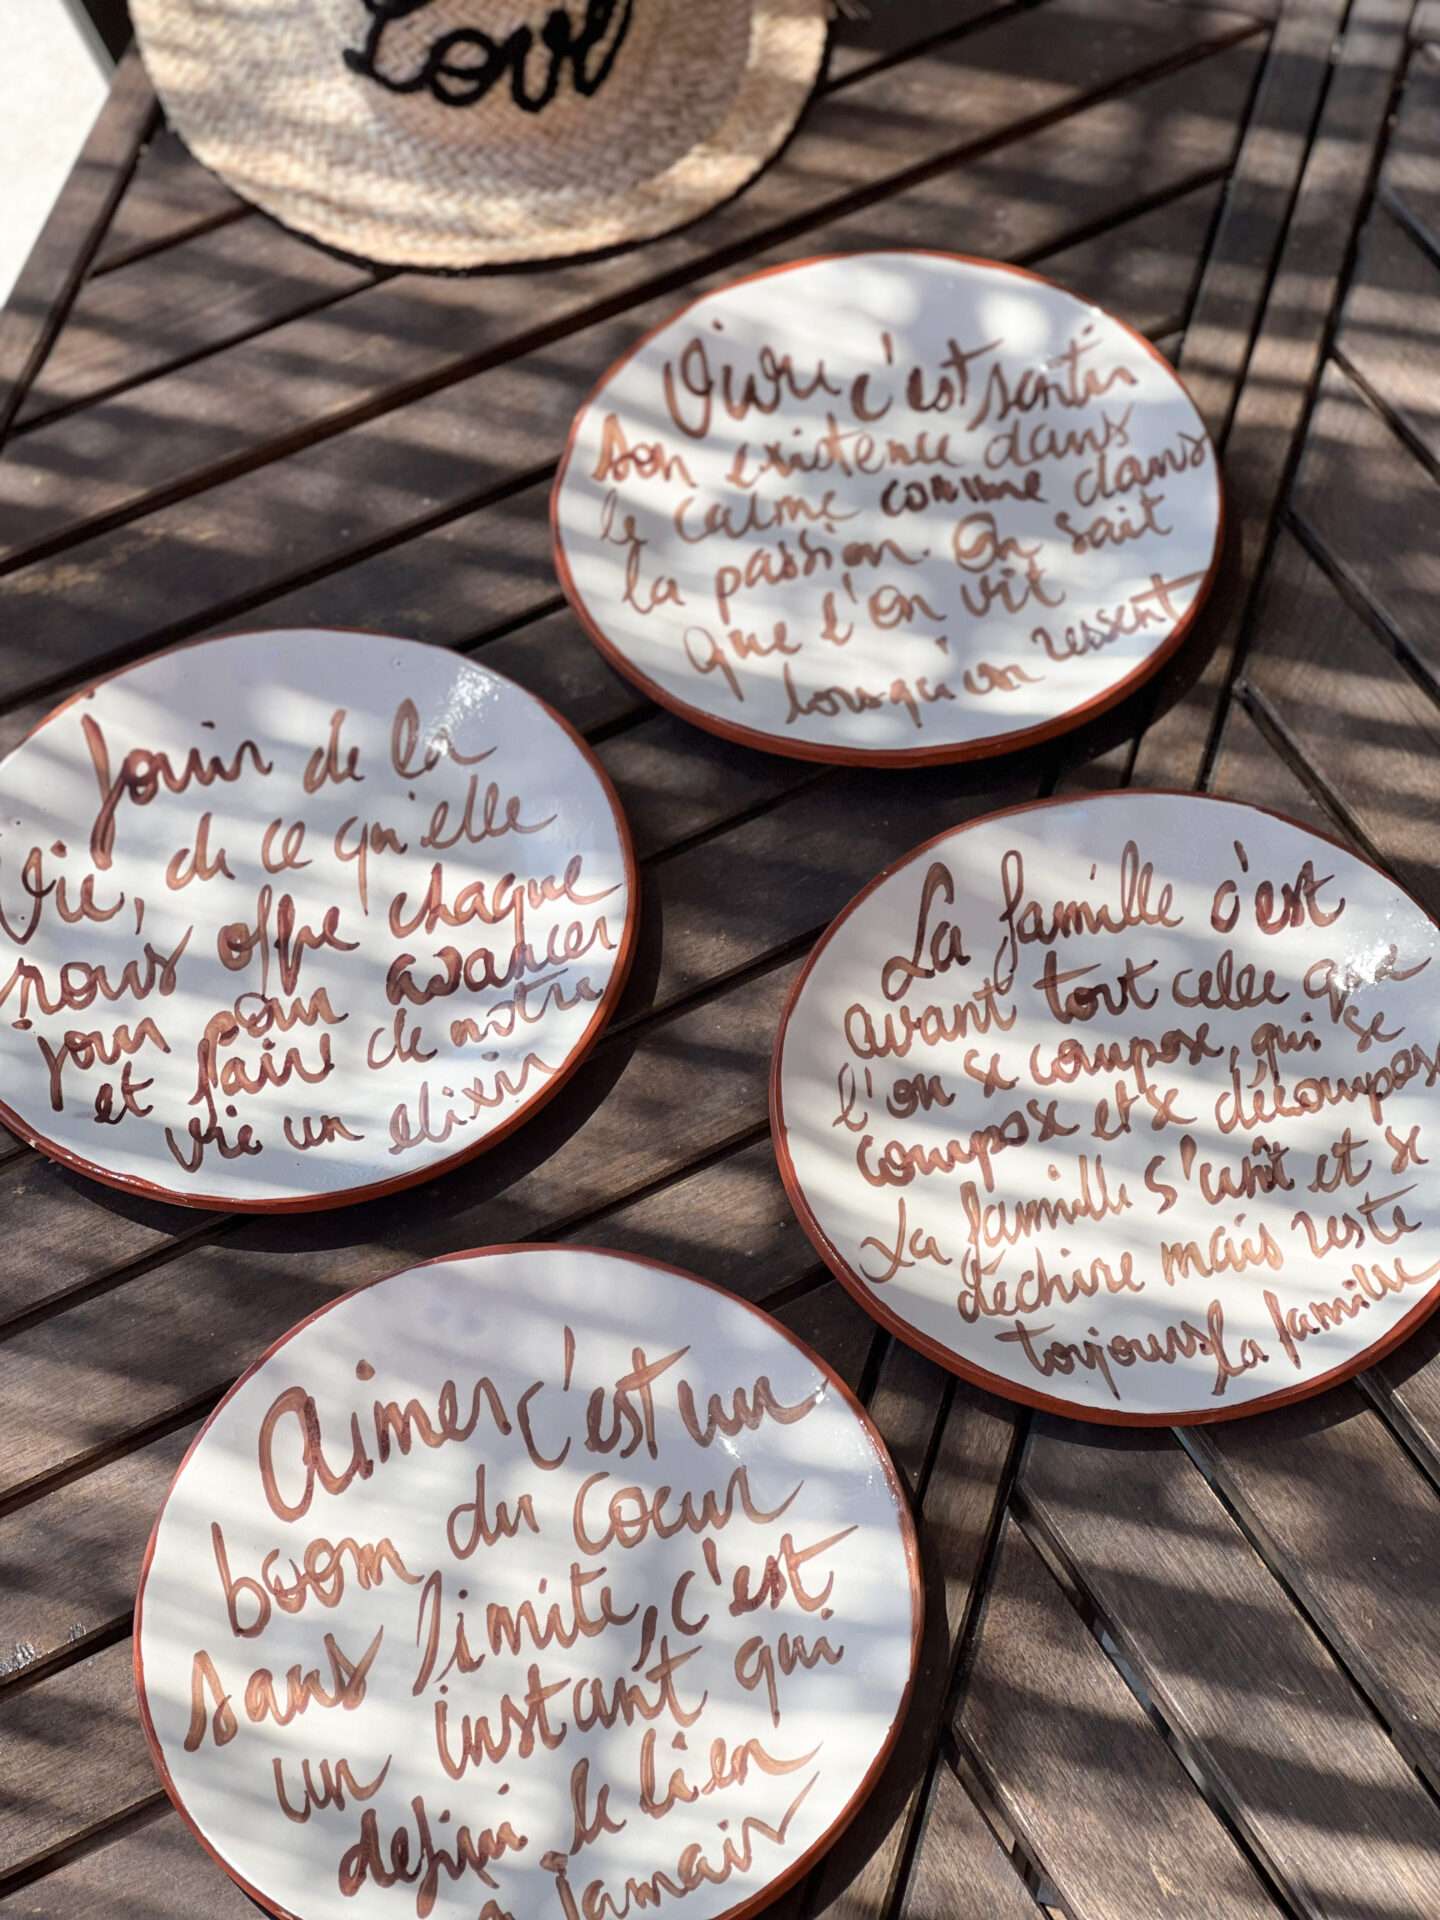 Love
Vivre c'est sentir
son existence dans
le calme comme dans
la passion. On sait
que l'on vit
lorsqu'on ressent
Jouir de la
vie, de ce qu'elle
nous offre chaque
jour pour avancer
et faire de notre
vie un elixir
La famille c'est
avant tout celle que
l'on se compose, qui se
compose et se décompose
La famille s'unît et se
déchire mais reste
toujours la famille
Aimer c'est un
boom du coeur
sans limite, c'est
un instant qui
defini le lien
a jamais